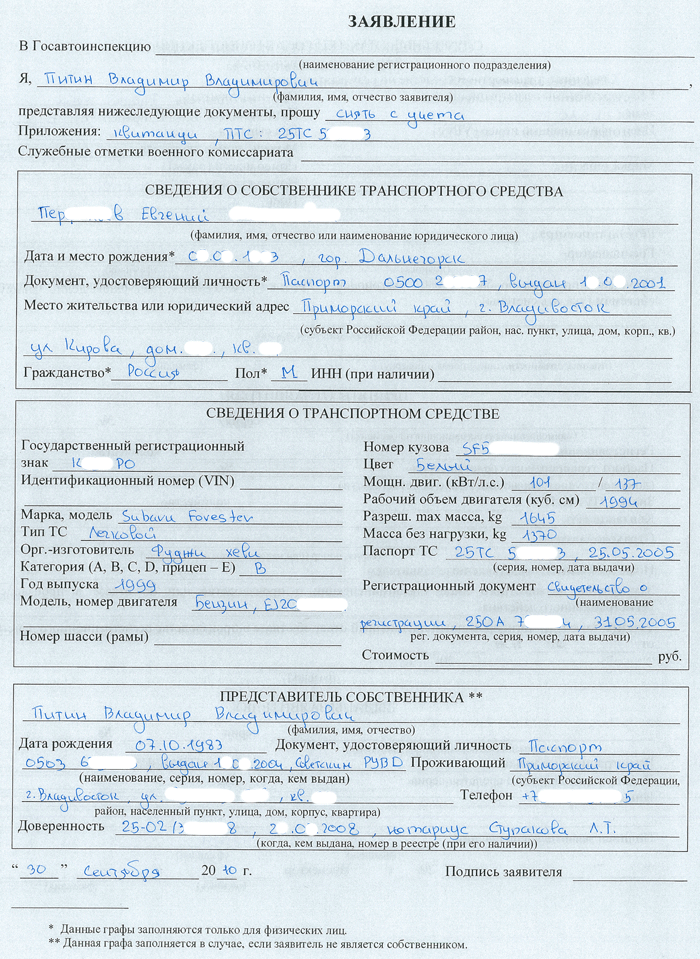 ЗАЯВЛЕНИЕ
В Госавтоинспекцию
(наименование регистрационного подразделения)
Я, Питин Владимир Владимирович,
(фамилия, имя, отчество заявителя)
представляя нижеследующие документы, прошу снять с учета
Приложения: квитанции, ПТС: 25ТС 5 3
Служебные отметки военного комиссариата
СВЕДЕНИЯ О СОБСТВЕННИКЕ ТРАНСПОРТНОГО СРЕДСТВА
Пер в Евгений
(фамилия, имя, отчество или наименование юридического лица)
Дата и место рождения* 3, гор. Дальнегорск
Документ, удостоверяющий личность* Паспорт 0500 2 7, выдан 1 0 .2001
Место жительства или юридический адрес Приморский край, г. Владивосток
(субъект Российской Федерации район, нас. пункт, улица, дом, корп., кв.)
ул Кирова, дом. , кв.
Гражданство* Россия Пол* М ИНН (при наличии)
СВЕДЕНИЯ О ТРАНСПОРТНОМ СРЕДСТВЕ
Государственный регистрационный
знак К РО
Идентификационный номер (VIN)
Марка, модель Subaru Forester
Тип ТС Легковой
Орг.-изготовитель Фуджи хеви
Категория (A, B, C, D, прицеп – E) В
Год выпуска 1999
Модель, номер двигателя Бензин, EJ20
Номер шасси (рамы)
Номер кузова SF5
Цвет Белый
Мощн. двиг. (кВт/л.с.) 101 / 137
Рабочий объем двигателя (куб. см) 1994
Разреш. max масса, kg 1645
Масса без нагрузки, kg 1370
Паспорт ТС 25ТС 5 3, 25.05.2005
(серия, номер, дата выдачи)
Регистрационный документ Свидетельство о
(наименование
регистрации, 25ОА 7 4, 31.05.2005
рег. документа, серия, номер, дата выдачи)
Стоимость руб.
ПРЕДСТАВИТЕЛЬ СОБСТВЕННИКА **
Питин Владимир Владимирович
(фамилия, имя, отчество)
Дата рождения 07.10.1983 Документ, удостоверяющий личность Паспорт
0503 6 , выдан 1 0 2004, Советским РУВД Проживающий Приморский край
(наименование, серия, номер, когда, кем выдан) (субъект Российской Федерации,
г. Владивосток, ул. , кв. Телефон +7 5
район, населенный пункт, улица, дом, корпус, квартира)
Доверенность 25-02/3 8, 2 .0 2008, нотариус Л.Т.
(когда, кем выдана, номер в реестре (при его наличии))
“ 30 ” Сентября 20 10 г. Подпись заявителя
* Данные графы заполняются только для физических лиц.
** Данная графа заполняется в случае, если заявитель не является собственником.